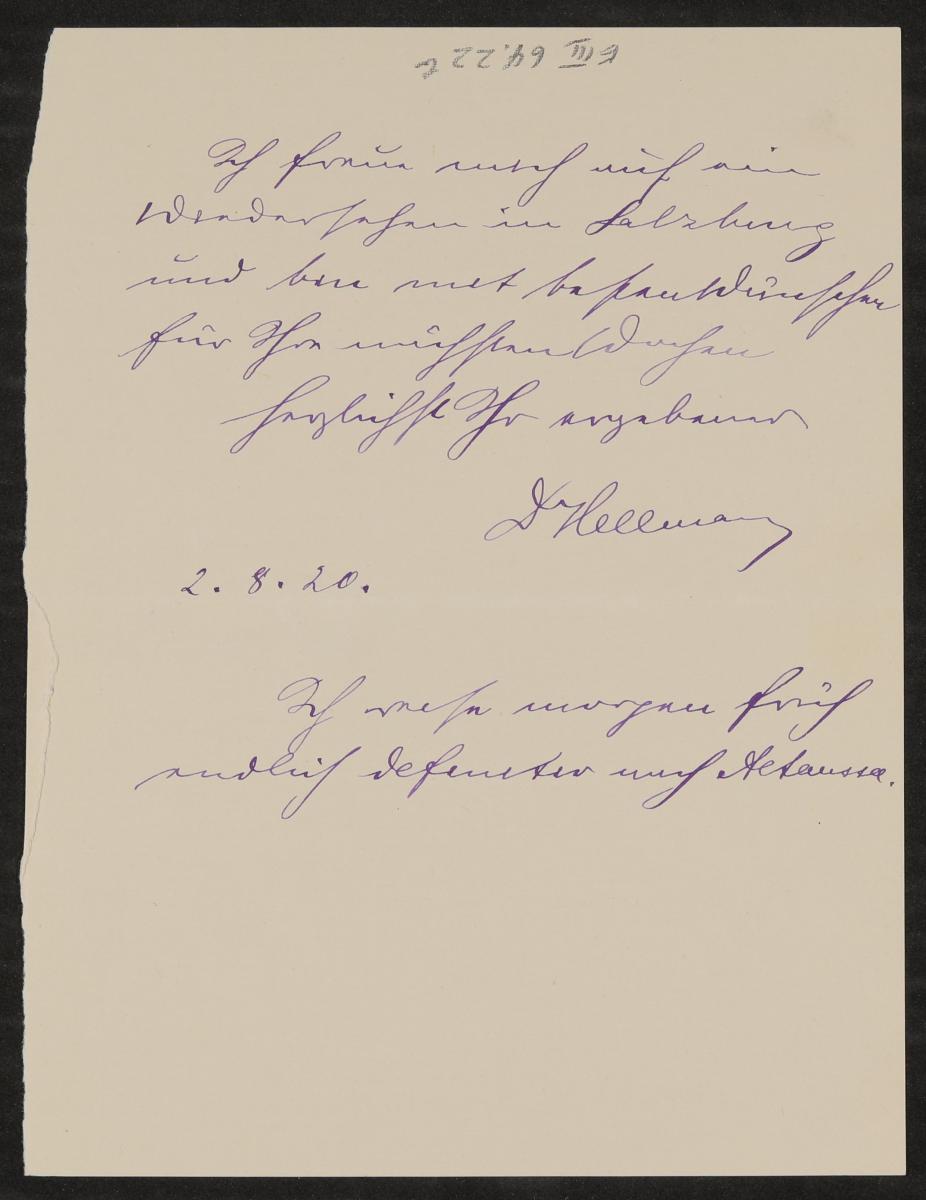 Ich freue mich auf ein
Wiedersehen in Salzburg
und bin mit besten Wünschen
für Ihre nächsten Wochen
herzlichst Ihr ergebener
Dr Hellmann
2. 8. 20.
Ich reise morgen früh
endlich definitiv nach Altaussee.